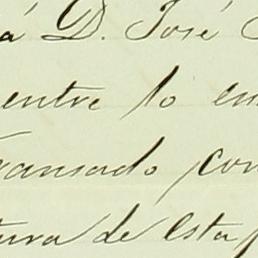 á D. José
entre lo en
cansado con
tura de esta p